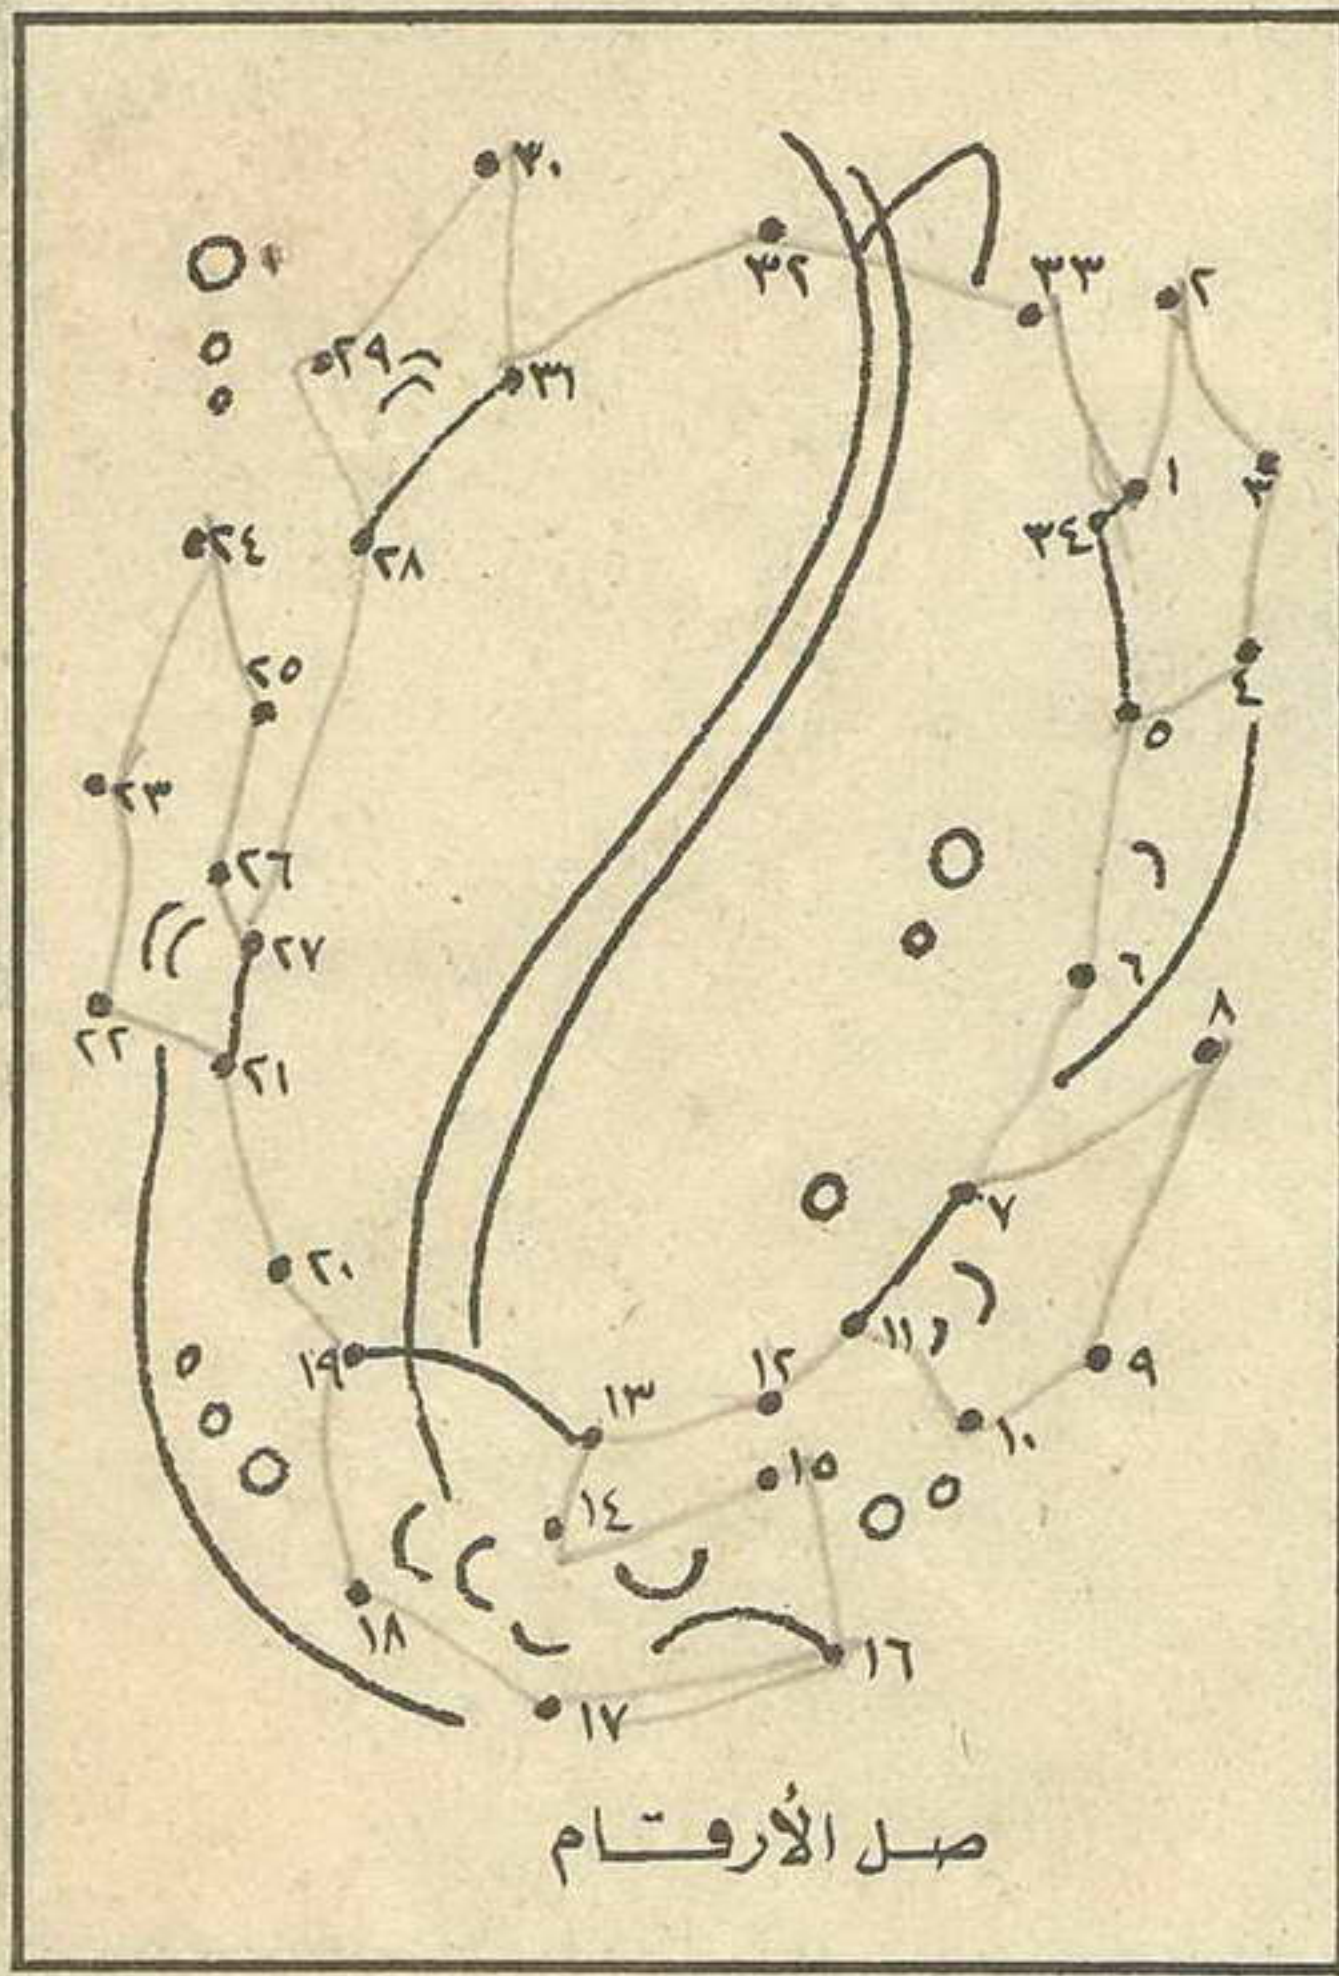 ٣٠
٣٢
٣٣
٢
٢٩
٣١
٣
١
٣٤
٢٤
٢٨
٤
٢٥
٥
٢٣
٢٦
٢٧
٦
٢٢
٢١
٨
٧
٢٠
١٩
١١
١٢
٩
١٣
١٠
١٥
١٤
١٨
١٦
١٧
صل الأرقام